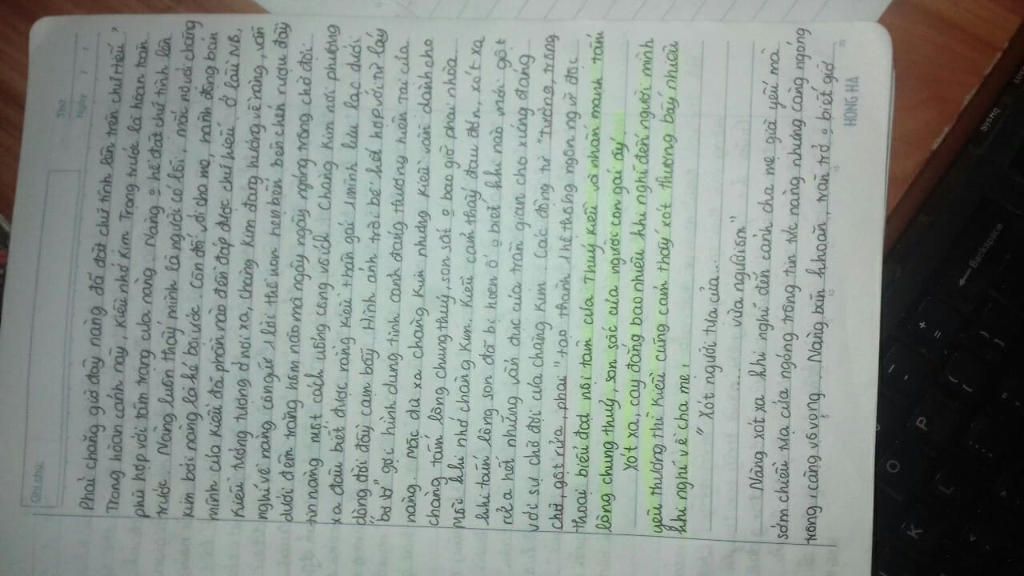 Ghi chú:
Thứ
Ngày / /
Phải chăng giờ đây nàng đã đặt chữ tình lên trên chữ hiếu?
Trong hoàn cảnh này, Kiều nhớ Kim Trọng trước là hoàn toàn
phù hợp với tâm trạng của nàng. Nàng ko hề đặt chữ tình lên
trước. Nàng luôn thấy mình là người có lỗi, mắc nợ với chàng
Kim bởi nàng là kẻ bội ước. Còn đối với cha mẹ, hành động bán
mình của Kiều đã phần nào đền đáp được chữ hiếu ở lầu NB,
Kiều tưởng tượng ở nơi xa, chàng Kim đang hướng về nàng, vẫn
nghĩ về nàng cùng lời thề non hẹn biển bên chén rượu đầy
dưới đêm trăng hôm nào mà ngày ngày ngóng trông chờ đợi
tin nàng một cách uổng công vô ích. Chàng Kim nơi phương
xa đâu biết được rằng Kiều thân gái 1 mình lưu lạc dưới
dòng đời đầy cạm bẫy. Hình ảnh "trời bể" kết hợp với từ láy
"bơ bơ" gợi hình dung tình cảnh đáng thương hiện tại của
nàng. Mặc dù xa chàng Kim nhưng Kiều vẫn dành cho
chàng tấm lòng chung thuỷ, son sắt ko bao giờ phai nhòa
Mỗi khi nhớ chàng Kim, Kiều cảm thấy đau đớn, xót xa
khi tấm lòng son đã bị hoen ố ko biết khi nào mới gột
rửa hết những vẩn đục của trần gian cho xứng đáng
với sự chờ đợi của chàng Kim. Các động từ "tưởng, trông
chờ, gột rửa, phai" tạo thành 1 hệ thống ngôn ngữ độc
thoại biểu đạt nội tâm của Thuý Kiều và nhấn mạnh tấm
lòng chung thuỷ, son sắc của người con gái ấy
Xót xa, cay đắng bao nhiêu khi nghĩ đến người mình
yêu thương thì Kiều cũng cảm thấy xót thương bấy nhiêu
khi nghĩ về cha mẹ:
"Xót người tựa cửa...
... vừa người ôm"
Nàng xót xa khi nghĩ đến cảnh cha mẹ già yếu mà
sớm chiều tựa cửa ngóng trông tin tức nàng nhưng càng ngóng
trông, càng vô vọng. Nàng băn khoăn, trăn trở ko biết giờ
HONG HA
Backspace